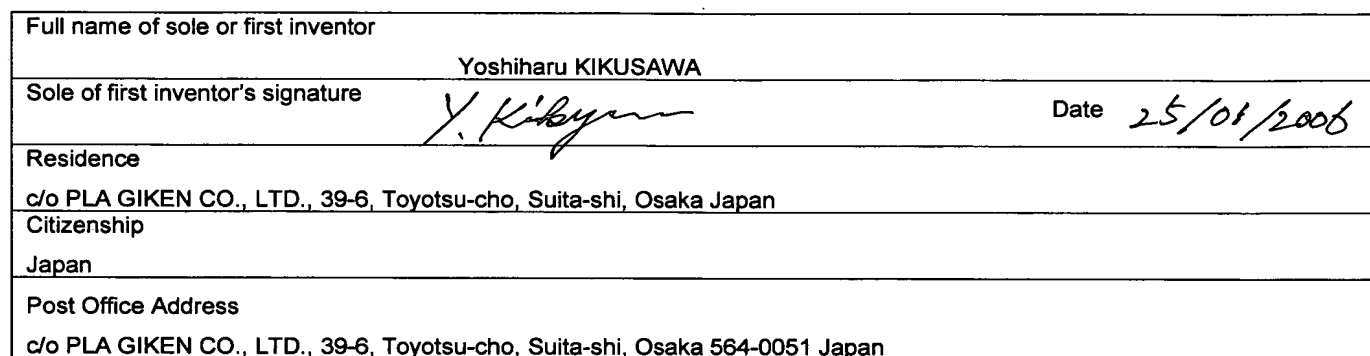 Full name of sole or first inventor
Yoshiharu KIKUSAWA
Sole of first inventor's signature Y. Date 25/01/2006
Residence
c/o PLA GIKEN CO., LTD., 39-6, Toyotsu-cho, Suita-shi, Osaka Japan
Citizenship
Japan
Post Office Address
c/o PLA GIKEN CO., LTD., 39-6, Toyotsu-cho, Suita-shi, Osaka 564-0051 Japan